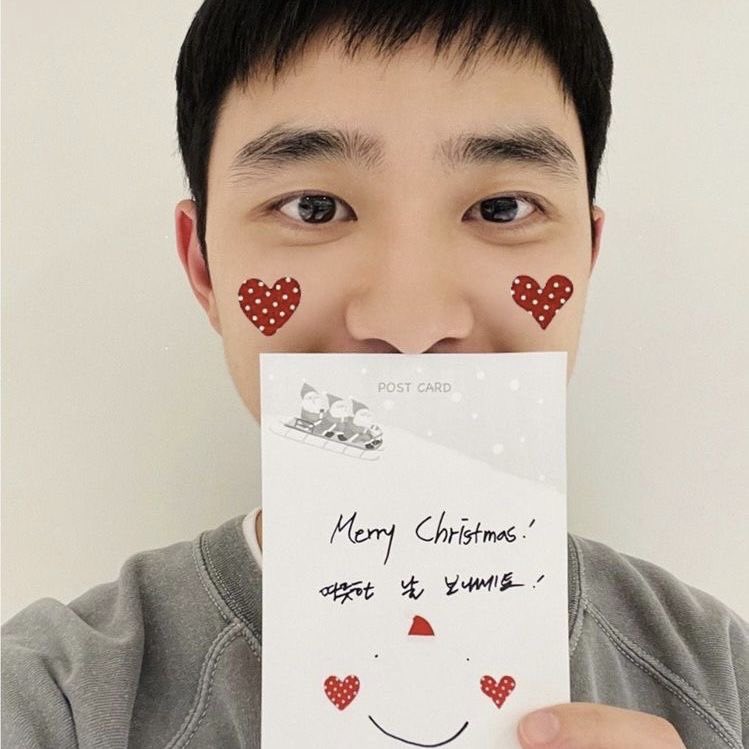 POST CARD
Merry Christmas!
따뜻한 날 보내세요!